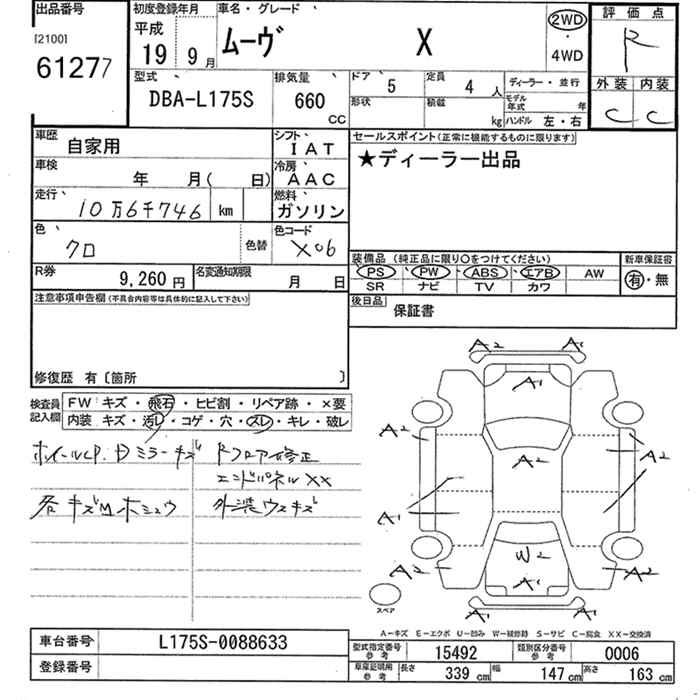 出品番号 初度登録年月 車名・グレード 2WD 評価点
[2100] 平成 ムーヴ X R
61277 19 9 月 4WD
型式 排気量 ドア 5 定員 4 人 ディーラー・並行 外装 内装
DBA-L175S 660 cc 形状 積載 kg モデル年式 年 C C
ハンドル 左・右
車歴 自家用 シフト IAT セールスポイント(正常に機能するものに限ります)
車検 年 月( 日) 冷房 AAC ★ディーラー出品
走行 10万6千746 km 燃料 ガソリン
色 クロ 色替 色コード X06
装備品 (純正品に限り○をつけてください) 新車保証書
R券 9,260 円 名変通知期限 月 日 PS PW ABS エアB AW 有・無
SR ナビ TV カワ
注意事項申告欄(不具合内容等は具体的に記入して下さい) 後日品 保証書
修復歴 有〔箇所 〕
検査員記入欄 FW キズ・飛石・ヒビ割・リペア跡・×要
内装 キズ・汚レ・コゲ・穴・スレ・キレ・破レ
ドミラーキズ Rフロア修正
エンドパネルXX
各キズM 外装ウスキズ
A2 A2
A1
A2 A2 A2
A1 A1
W2
A2 A1 A2
スペア A1 A1
A-キズ E-エクボ U-凹み W-補修跡 S-サビ C-腐食 XX-交換済
車台番号 L175S-0088633
登録番号
型式指定番号 参考 15492 類別区分番号 参考 0006
車庫証明用 参考 長さ 339 cm 幅 147 cm 高さ 163 cm